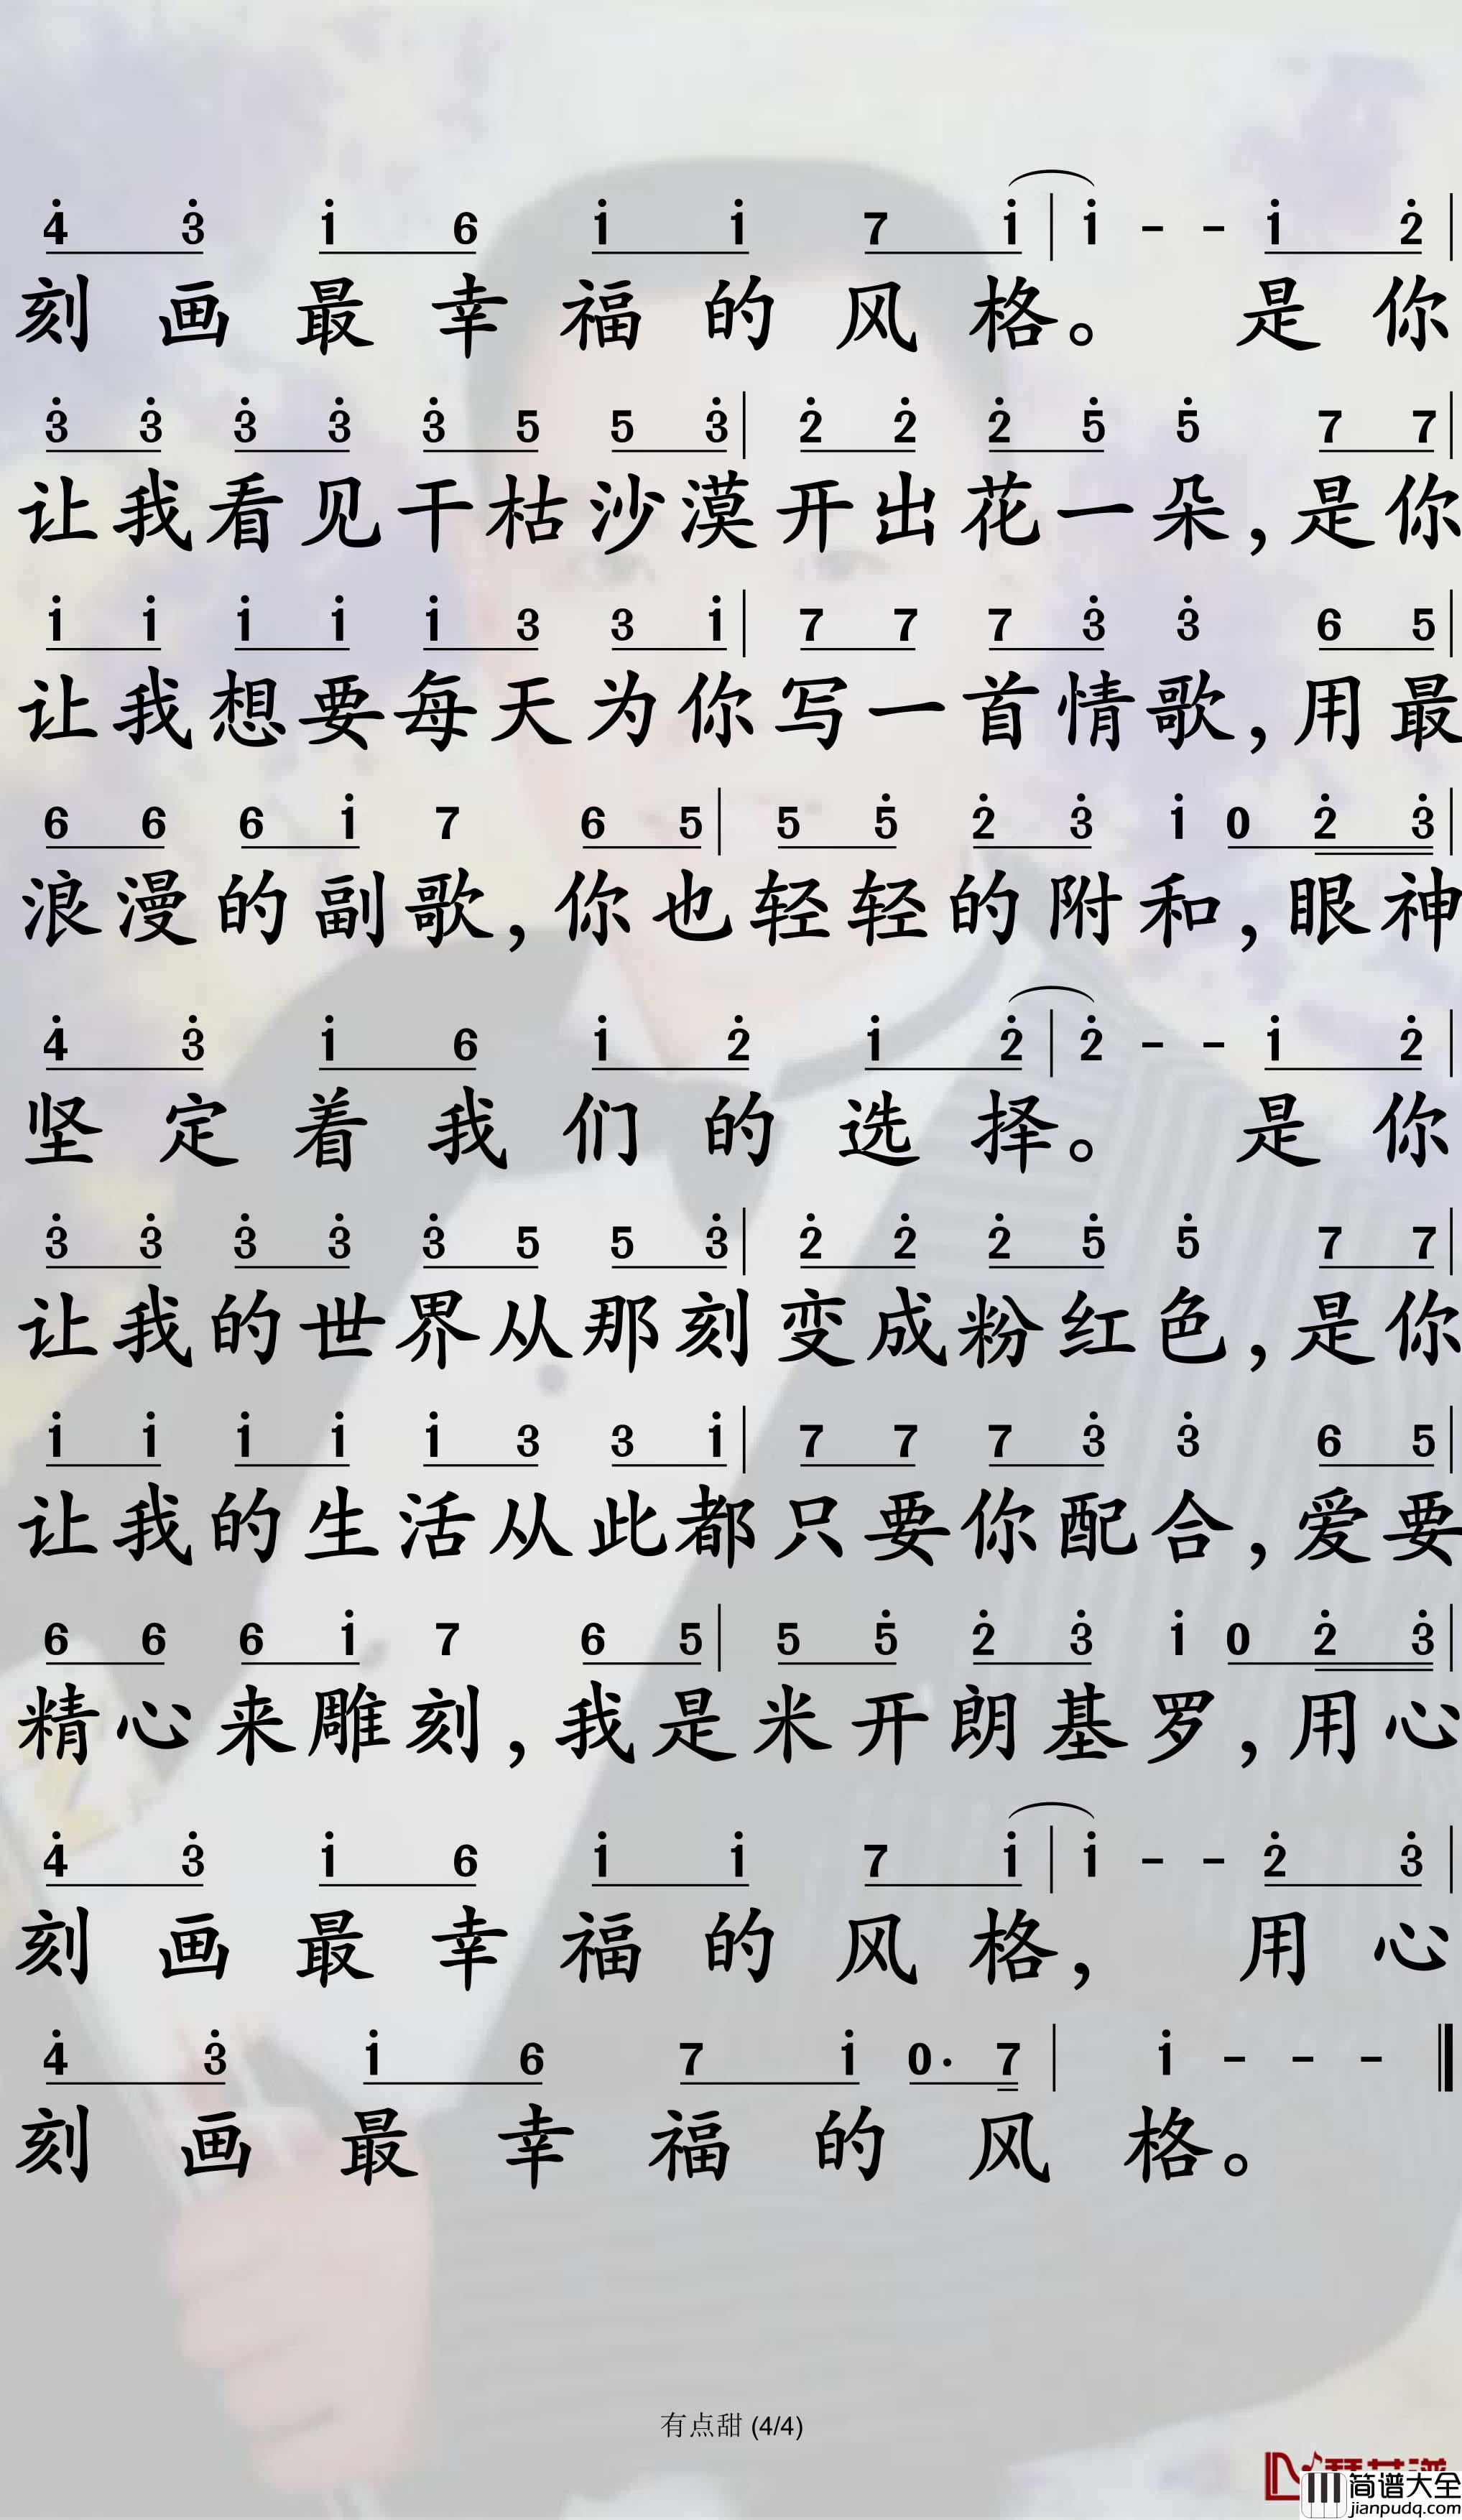 4̇ 3̇ 1̇ 6 1̇ 1̇ 7 1̇ | 1̇ - - 1̇ 2̇ |
刻画最幸福的风格。 是你
3̇ 3̇ 3̇ 3̇ 3̇ 5 5 3̇ | 2̇ 2̇ 2̇ 5̇ 5̇ 7 7 |
让我看见干枯沙漠开出花一朵,是你
1̇ 1̇ 1̇ 1̇ 1̇ 3 3 1̇ | 7 7 7 3̇ 3̇ 6 5 |
让我想要每天为你写一首情歌,用最
6 6 6 1̇ 7 6 5 | 5 5̇ 2̇ 3̇ 1̇ 0 2̇ 3̇ |
浪漫的副歌,你也轻轻的附和,眼神
4̇ 3̇ 1̇ 6 1̇ 2̇ 1̇ 2̇ | 2̇ - - 1̇ 2̇ |
坚定着我们的选择。 是你
3̇ 3̇ 3̇ 3̇ 3̇ 5 5 3̇ | 2̇ 2̇ 2̇ 5̇ 5̇ 7 7 |
让我的世界从那刻变成粉红色,是你
1̇ 1̇ 1̇ 1̇ 1̇ 3 3 1̇ | 7 7 7 3̇ 3̇ 6 5 |
让我的生活从此都只要你配合,爱要
6 6 6 1̇ 7 6 5 | 5 5̇ 2̇ 3̇ 1̇ 0 2̇ 3̇ |
精心来雕刻,我是米开朗基罗,用心
4̇ 3̇ 1̇ 6 1̇ 1̇ 7 1̇ | 1̇ - - 2̇ 3̇ |
刻画最幸福的风格, 用心
4̇ 3̇ 1̇ 6 7 1̇ 0· 7 | 1̇ - - - ‖
刻画最幸福的风格。
有点甜 (4/4)
简谱大全
jianpudq.com